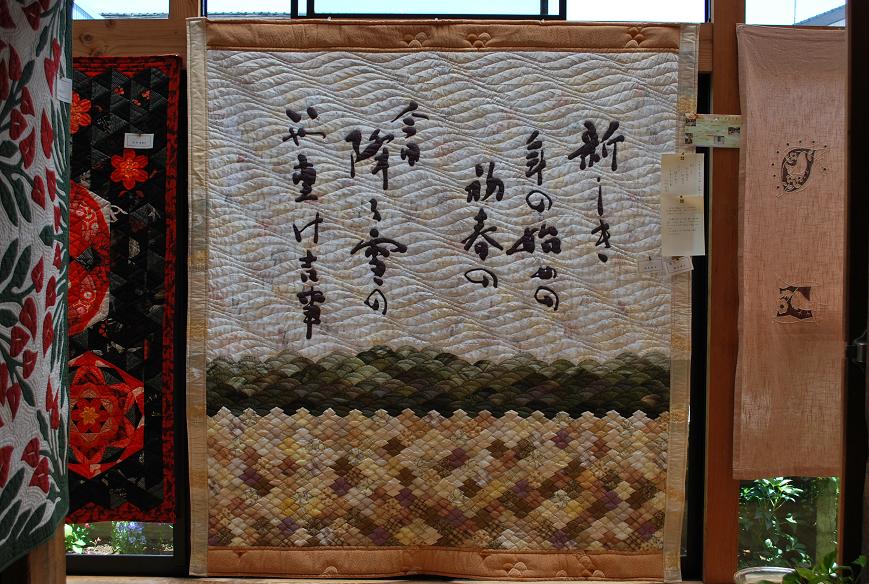 新しき
年の始めの
初春の
今日
降る雪の
いや重け吉事